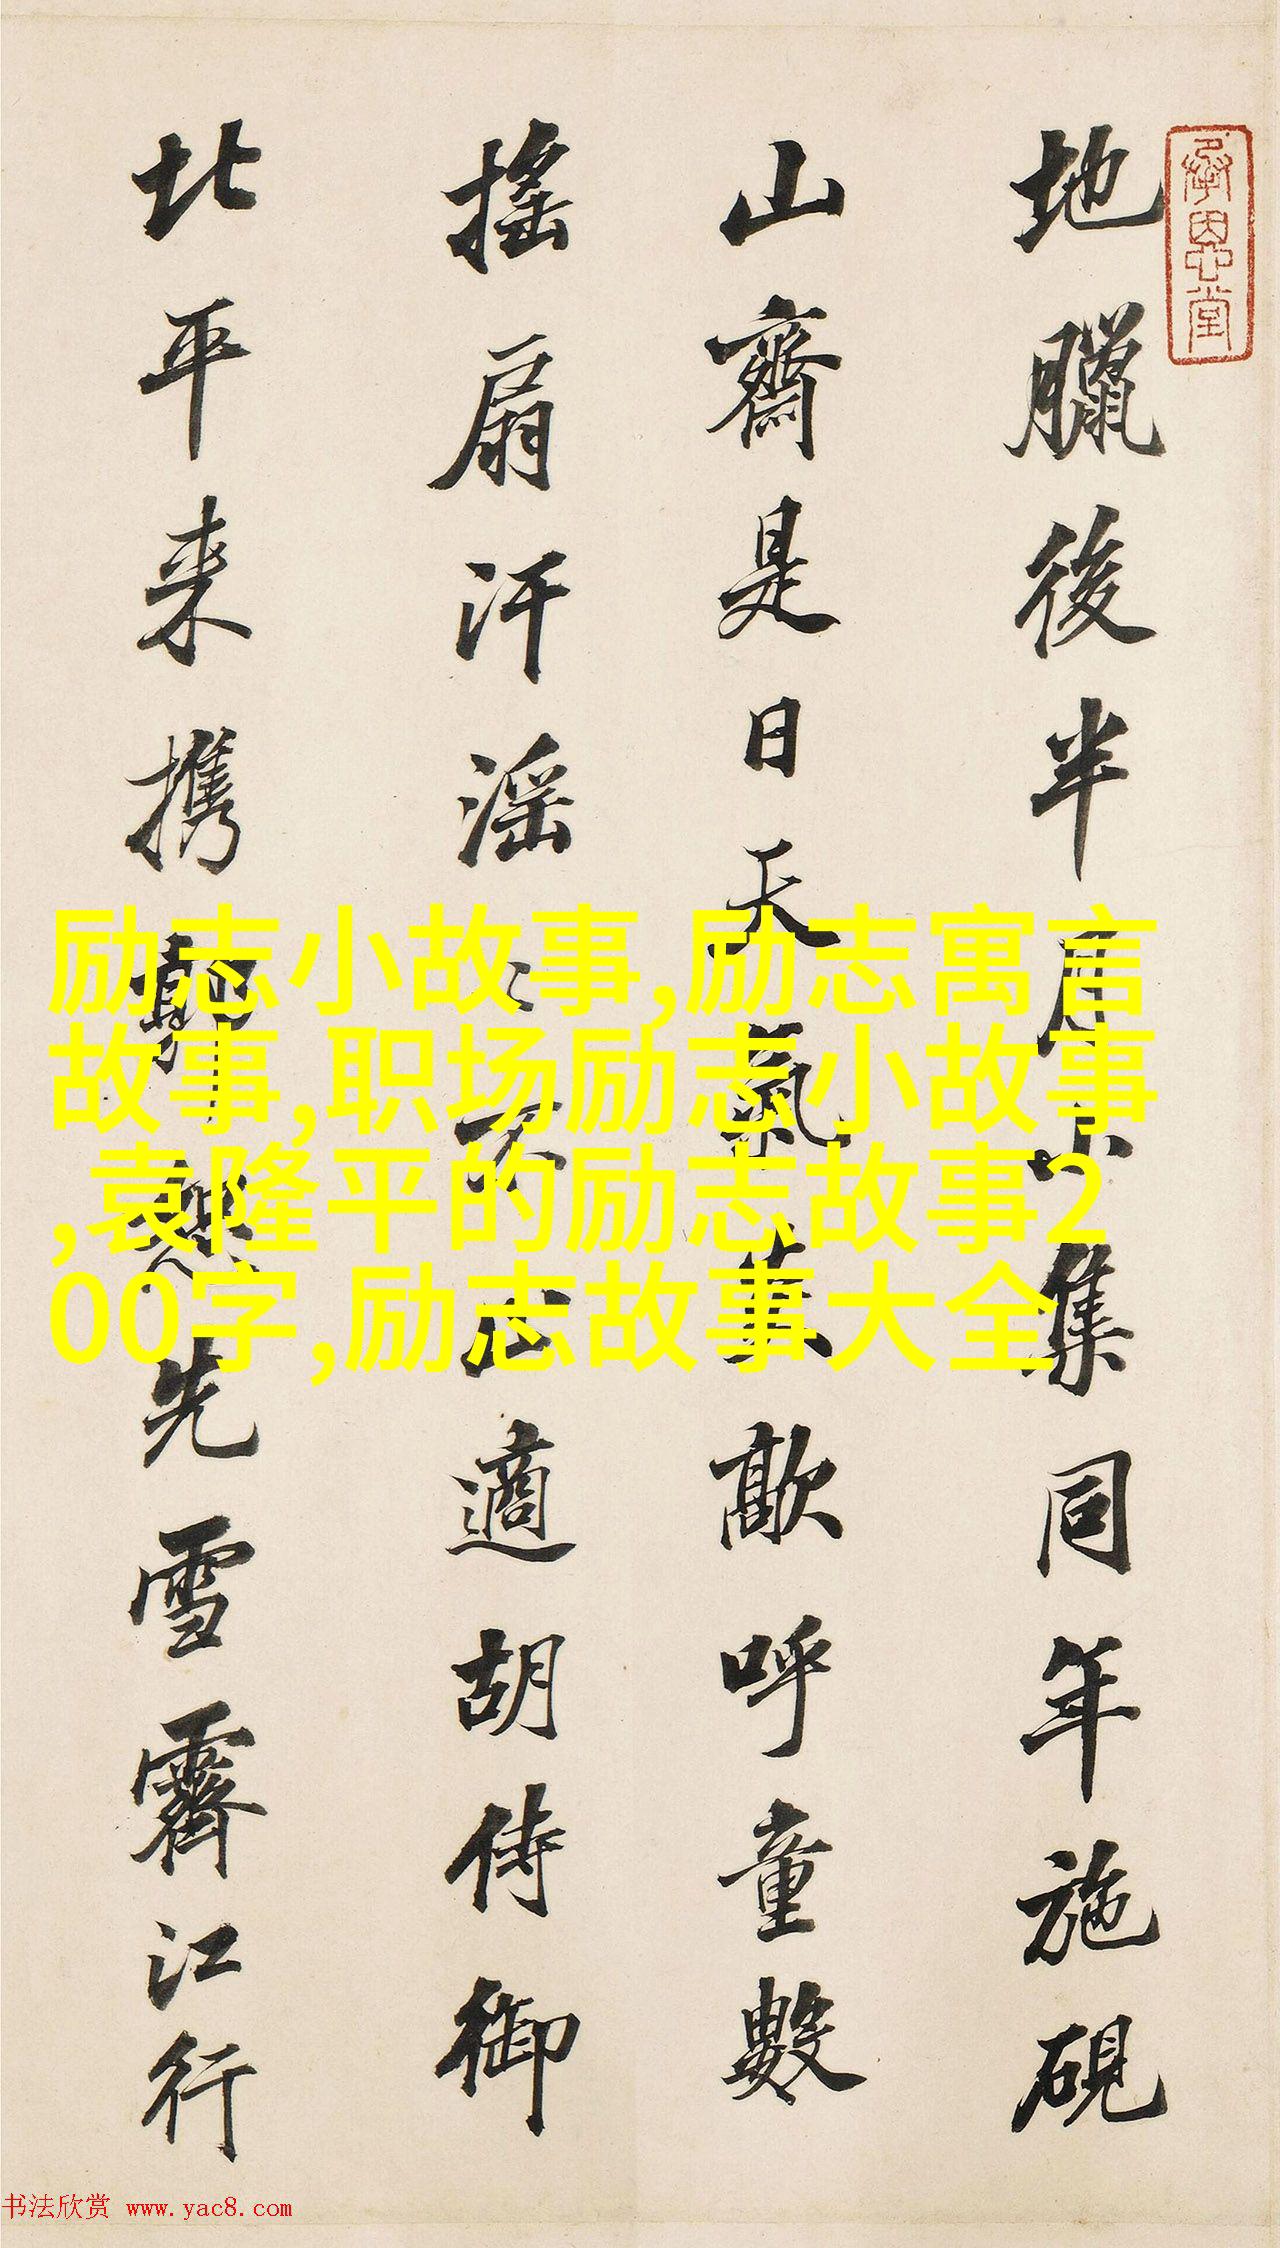 地臘後半月小集同年施硯
山齋是日天氣蒸歊呼童數
搖扇汗滛〻不止適胡侍御
北平来攜郭熙先雪霽江行
承恩堂
励志小故事,励志寓言
故事,职场励志小故事
,袁隆平的励志故事2
00字,励志故事大全
书法欣赏 www.yac8.com